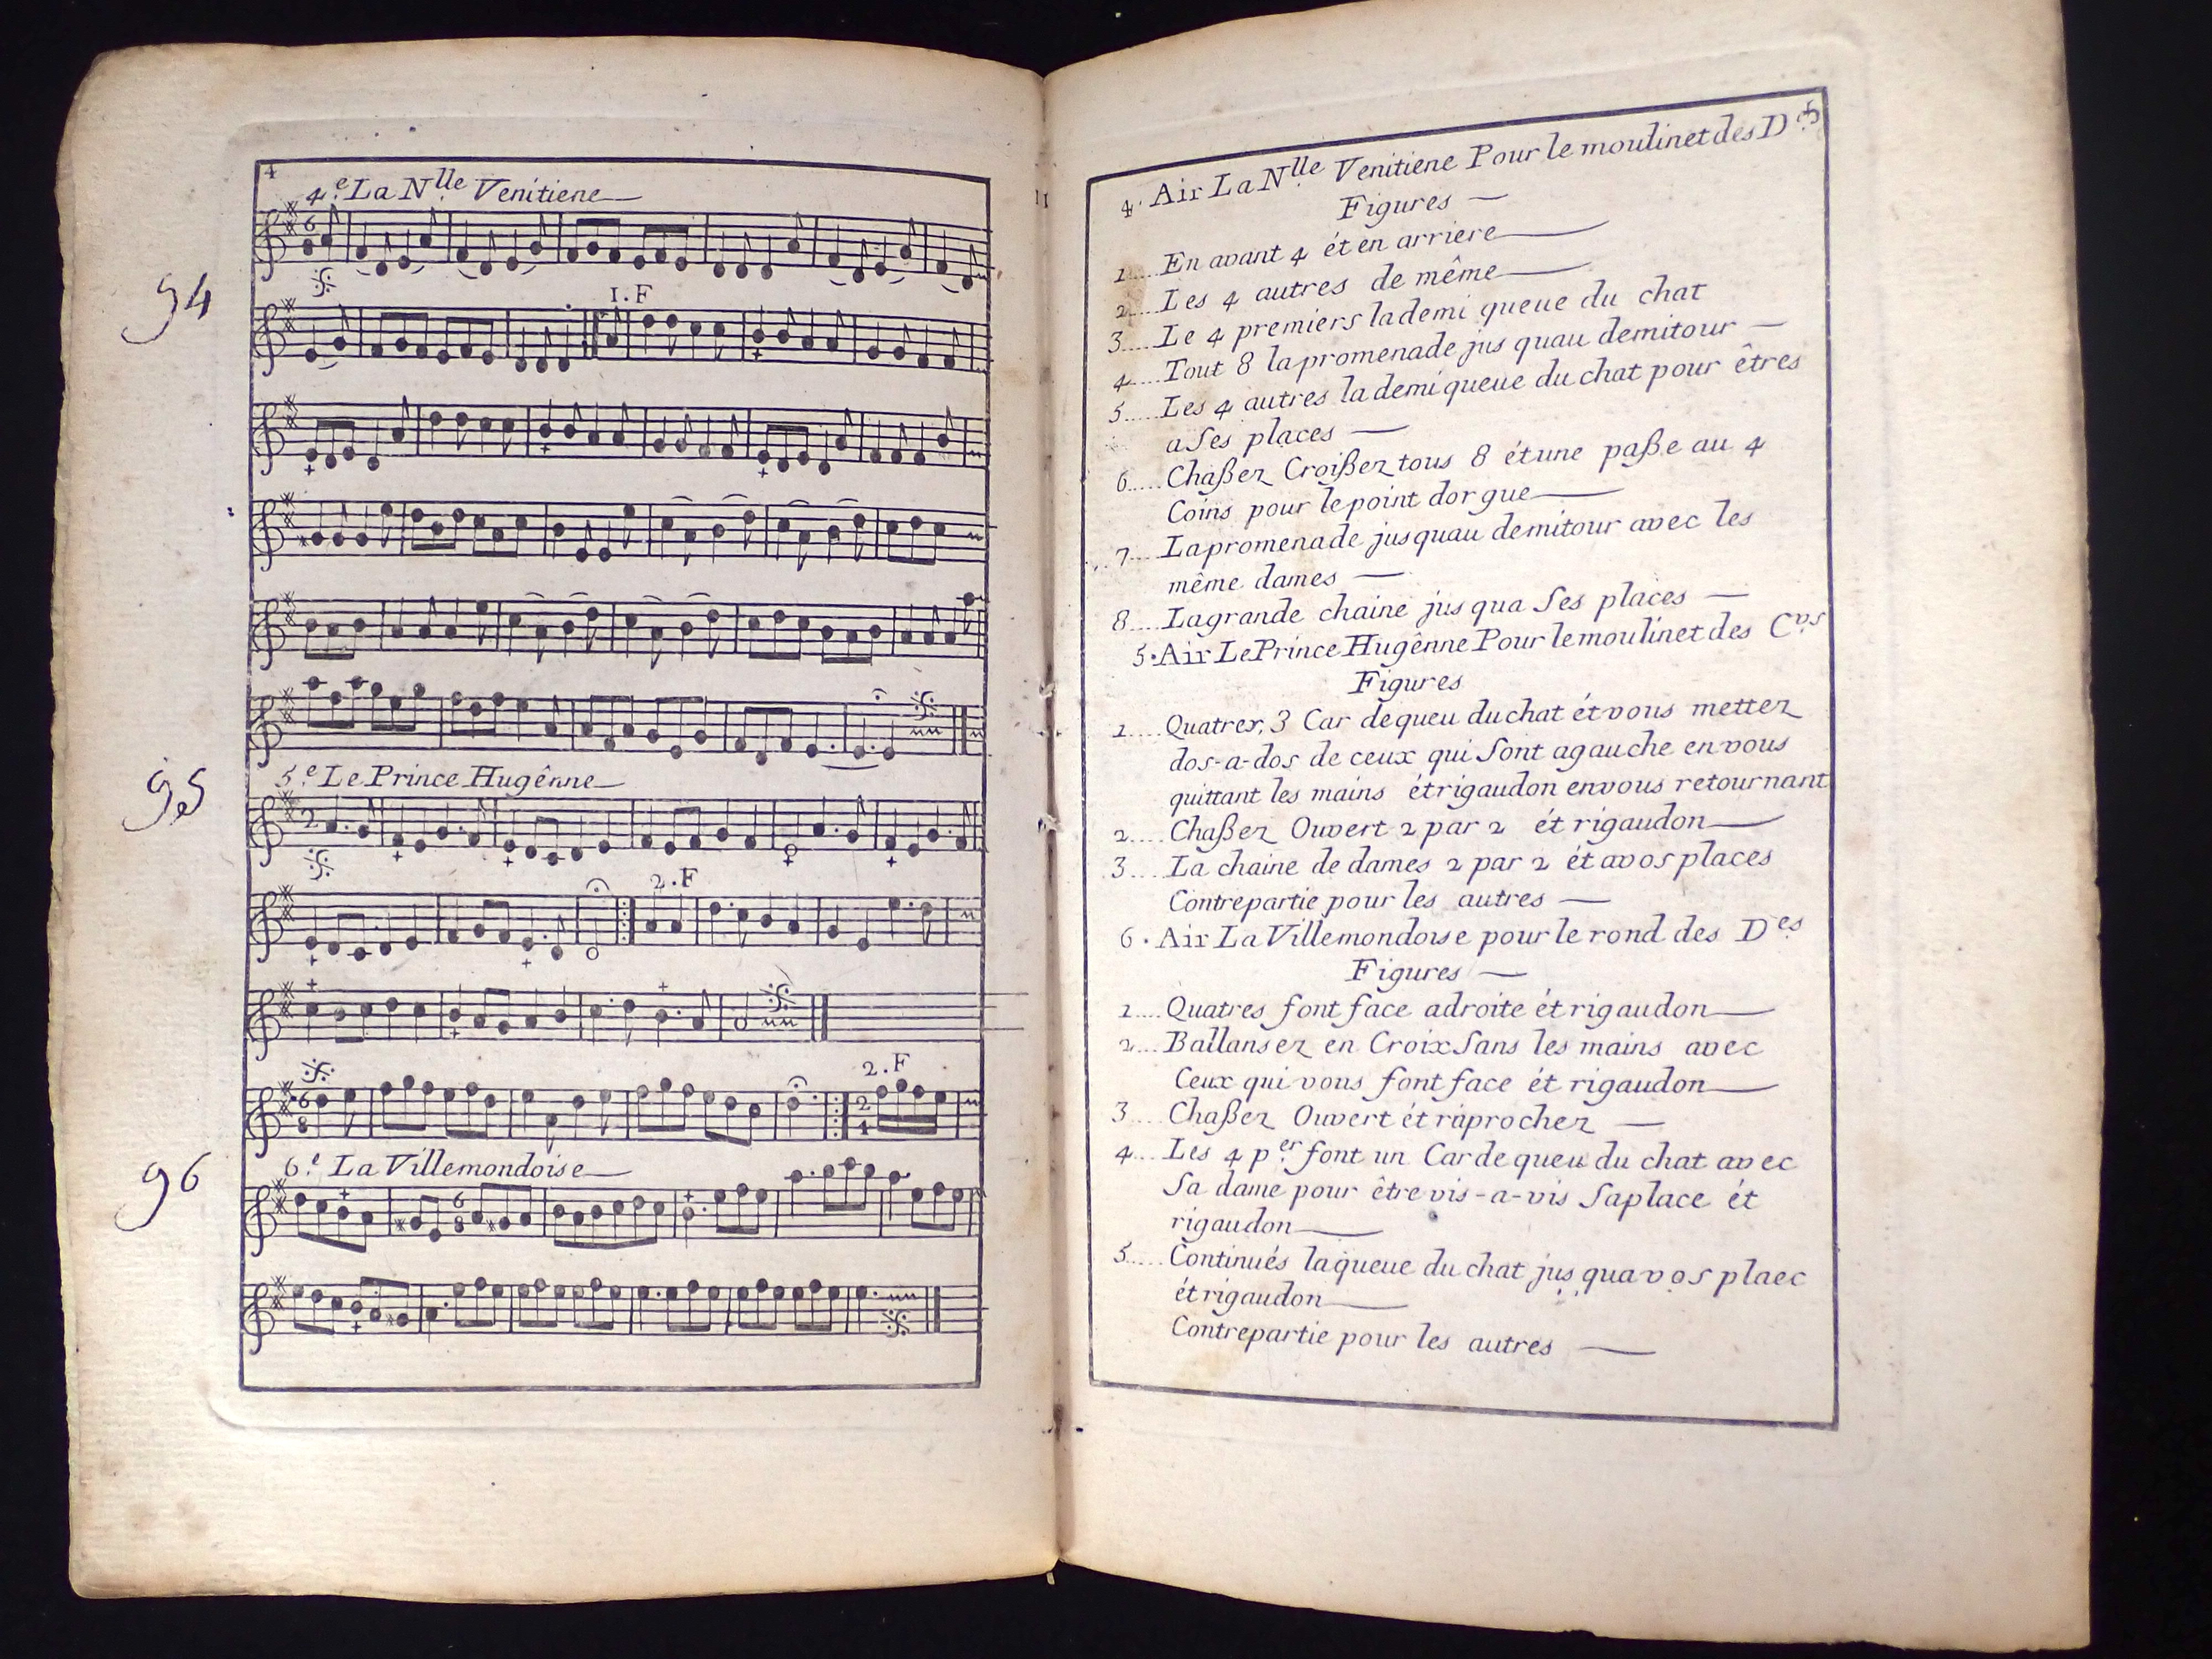 4
4.e La Nlle Venitiene
94
1.F
5.e Le Prince Hugênne
95
2.F
2.F
6.e La Villemondoise
96
5
4. Air La Nlle Venitiene Pour le moulinet des D.es
Figures
1.... En avant 4 ét en arriere
2.... Les 4 autres de même
3.... Le 4 premiers la demi queue du chat
4.... Tout 8 la promenade jus quau demitour
5.... Les 4 autres la demi queue du chat pour êtres
a ses places
6.... Chaßez Croißez tous 8 ét une paße au 4
Coins pour le point dorgue
7.... La promenade jusquau demitour avec les
même dames
8.... La grande chaine jus qua ses places
5. Air Le Prince Hugênne Pour le moulinet des C.vs
Figures
1.... Quatrex, 3 Car de queu du chat ét vous mettez
dos-a-dos de ceux qui sont a gauche en vous
quittant les mains ét rigaudon en vous retournant
2.... Chaßez Ouvert 2 par 2 ét rigaudon
3.... La chaine de dames 2 par 2 ét a vos places
Contrepartie pour les autres
6. Air La Villemondoise pour le rond des D.es
Figures
1.... Quatres font face a droite ét rigaudon
2.... Ballansez en Croix sans les mains avec
Ceux qui vous font face ét rigaudon
3.... Chaßez Ouvert ét raprochez
4.... Les 4 p.er font un Car de queu du chat avec
Sa dame pour être vis-a-vis sa place ét
rigaudon
5.... Continués la queue du chat jus qua vos plaec
ét rigaudon
Contrepartie pour les autres